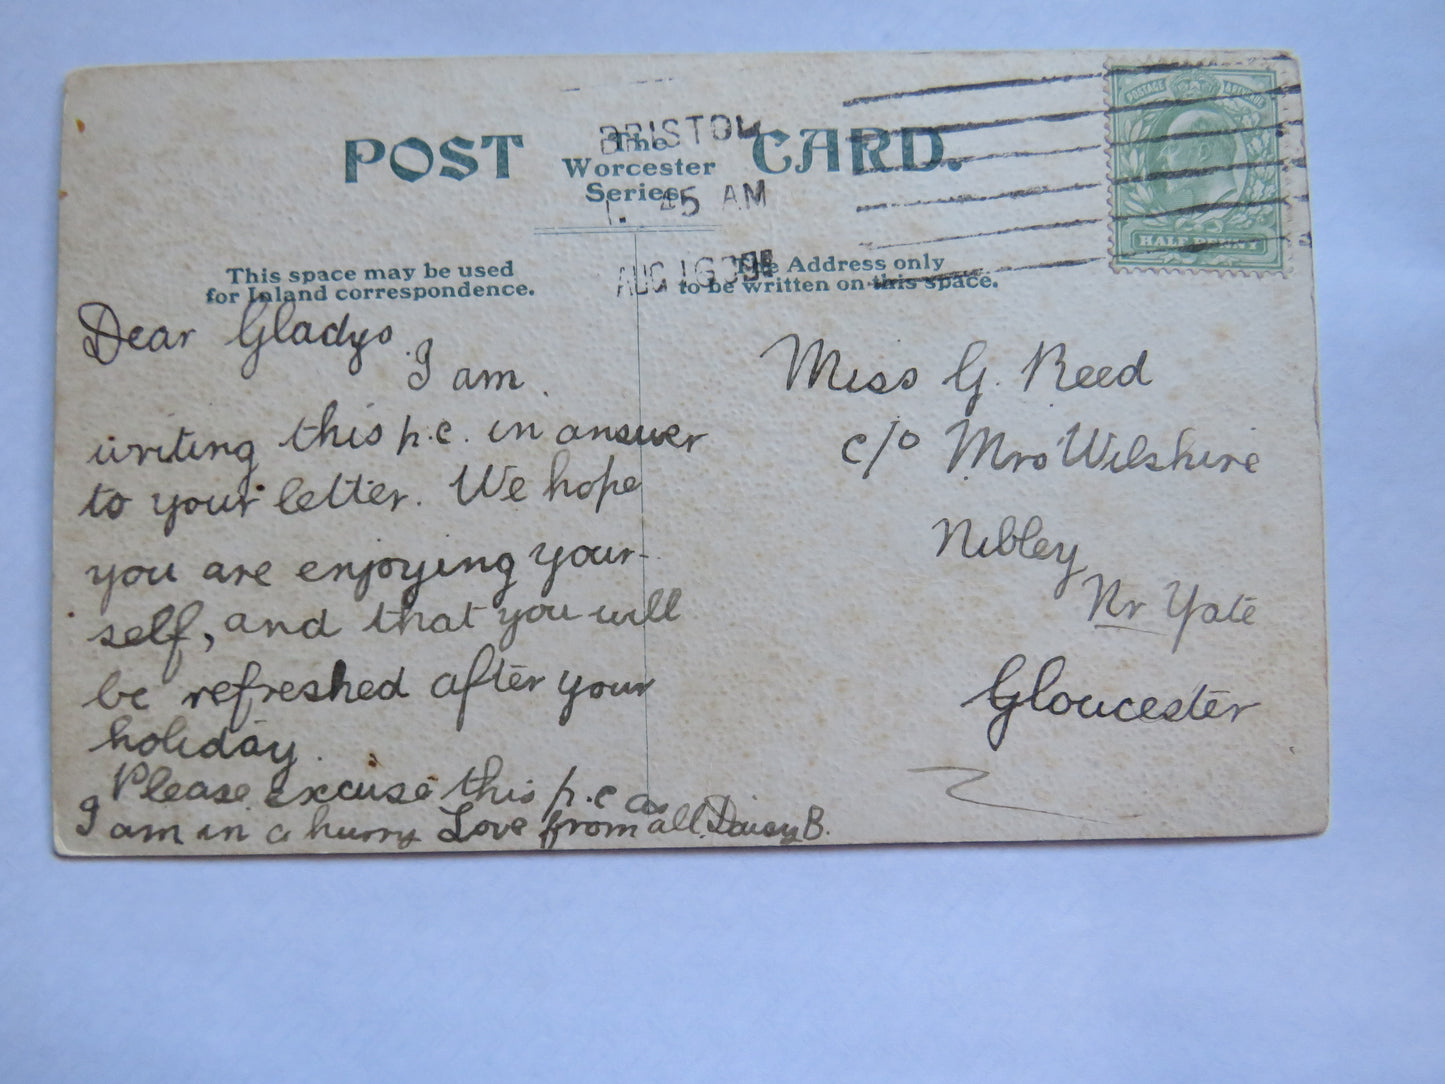 POST
The
Worcester
Series
CARD.
BRISTOL
1. 45 AM
AUG 16 09
POSTAGE & REVENUE
HALFPENNY
This space may be used
for Inland correspondence.
The Address only
to be written on this space.
Dear Gladys.
I am.
writing this p.c. in answer
to your letter. We hope
you are enjoying your-
self, and that you will
be refreshed after your
holiday.
Please excuse this p.c as
I am in a hurry Love from all. Daisy B.
Miss G. Reed
c/o Mrs Wilshire
Nibley
Nr Yate
Gloucester